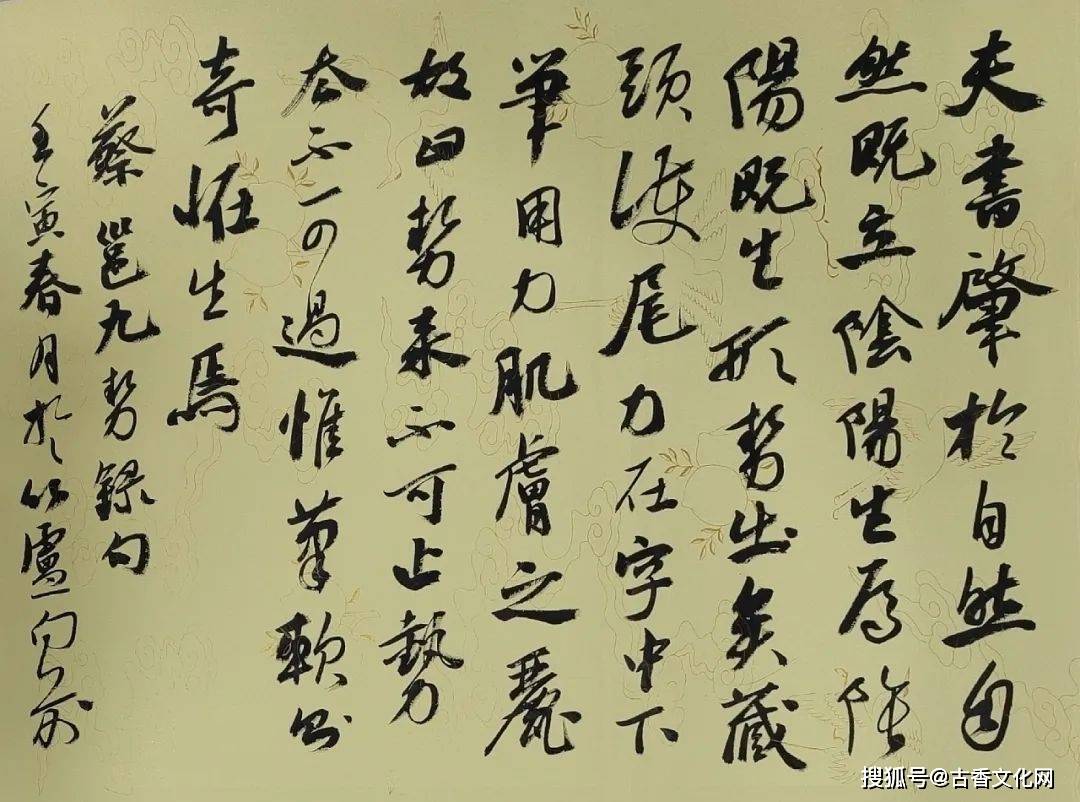 夫書肇於自然自
然既立陰陽生焉陰
陽既生形勢出矣藏
頭護尾力在字中下
筆用力肌膚之麗
故曰勢來不可止勢
去不可過惟筆軟則
奇怪生焉
蔡邕九勢錄句
壬寅春月於竹廬
搜狐号@古香文化网